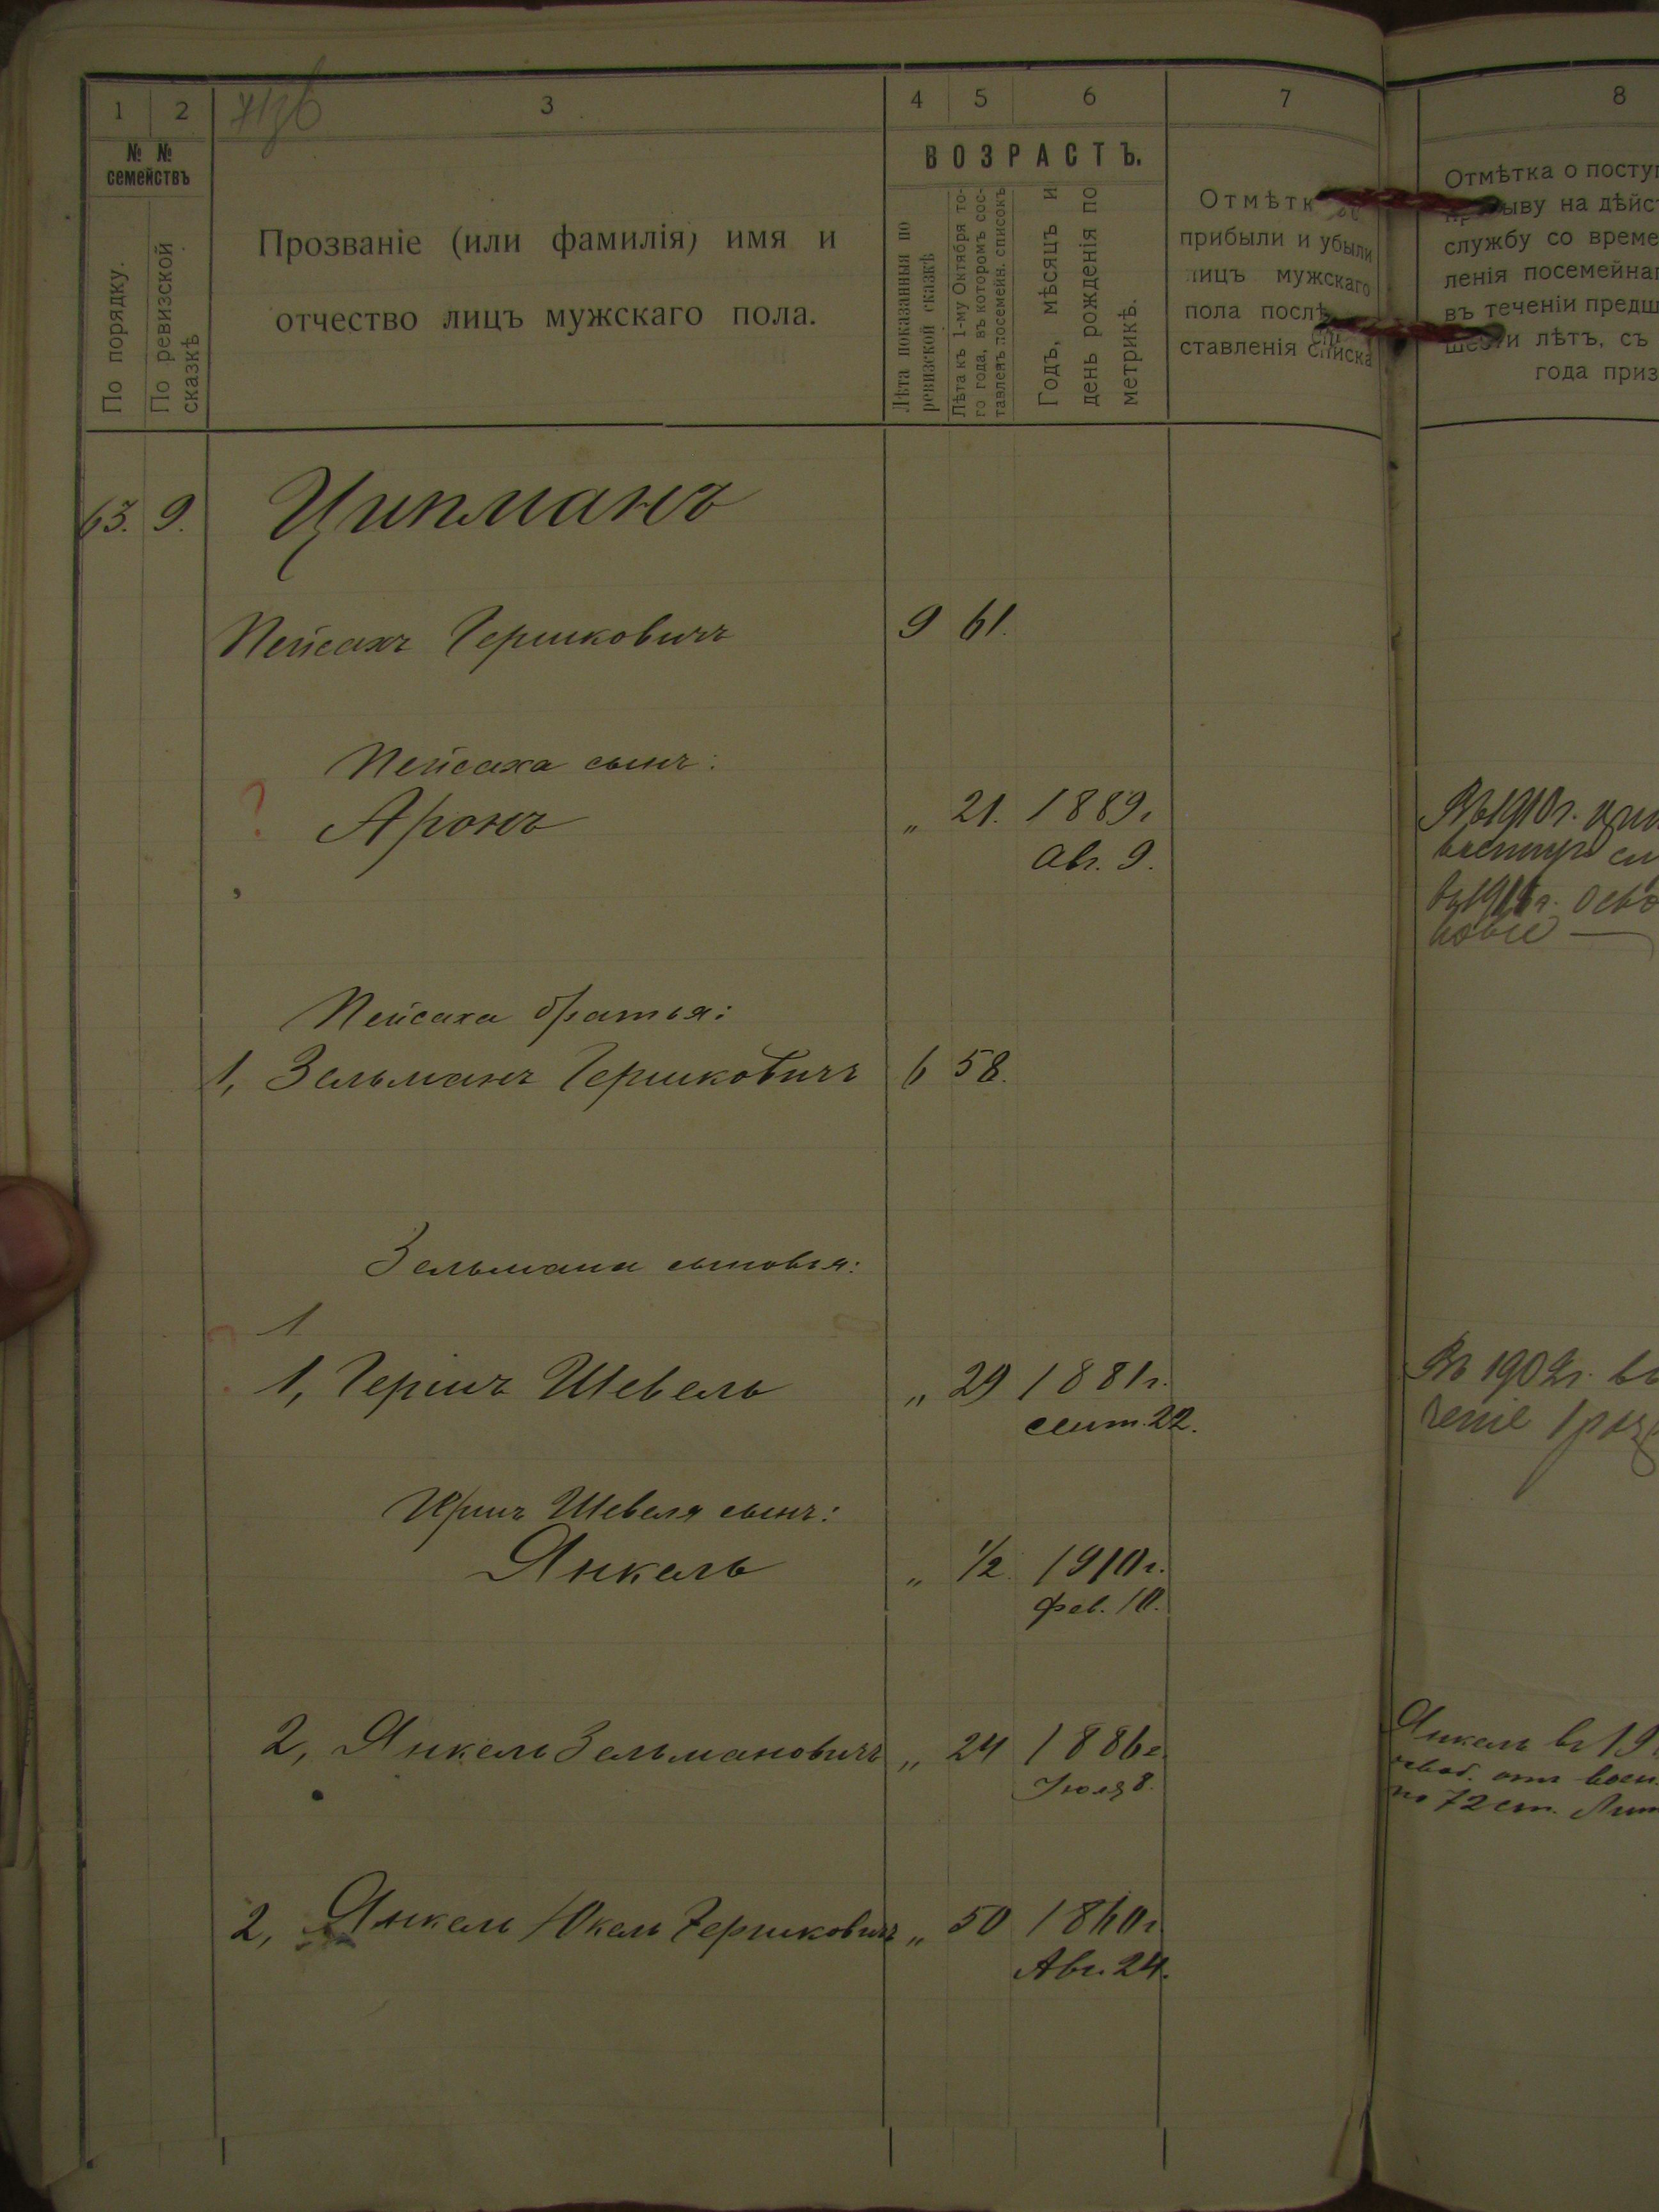 1 2 3 4 5 6 7 8
жид
№ № семействъ
По порядку.
По ревизской сказкѣ
Прозваніе (или фамилія) имя и
отчество лицъ мужскаго пола.
ВОЗРАСТЪ.
Лѣта показанныя по
ревизской сказкѣ
Лѣта къ 1-му Октября то-
го года, въ которомъ сос-
тавленъ посемейн. списокъ
Годъ, мѣсяцъ и
день рожденія по
метрикѣ.
Отмѣтк
прибыли и убыли
лицъ мужскаго
пола послѣ
ставленія списка
Отмѣтка о посту
ыву на дѣйс
службу со време
ленія посемейна
въ теченіи предш
шести лѣтъ, съ
года приз
63. 9. Ципманъ
Пейсахъ Гершковичъ 9 61.
Пейсаха сынъ:
? Аронъ " 21. 1889г
Авг. 9.
Въ 1910г.
Пейсаха братья:
1, Зельманъ Гершковичъ 6 58.
Зельмана сыновья:
1
1, Гершъ Шевель " 29 1881г.
сент. 22.
Въ 1902г. въ
ченіе 1 раз
Гершъ Шевеля сынъ:
Янкель " 1/2 1910г.
фев. 10.
2, Янкель Зельмановичъ " 24 1886г.
Іюля 8.
Янкель въ 19
освоб. отъ воен.
по 72 ст. Лит
2, Янкель Юкель Гершковичъ " 50 1860г
Авг. 24.